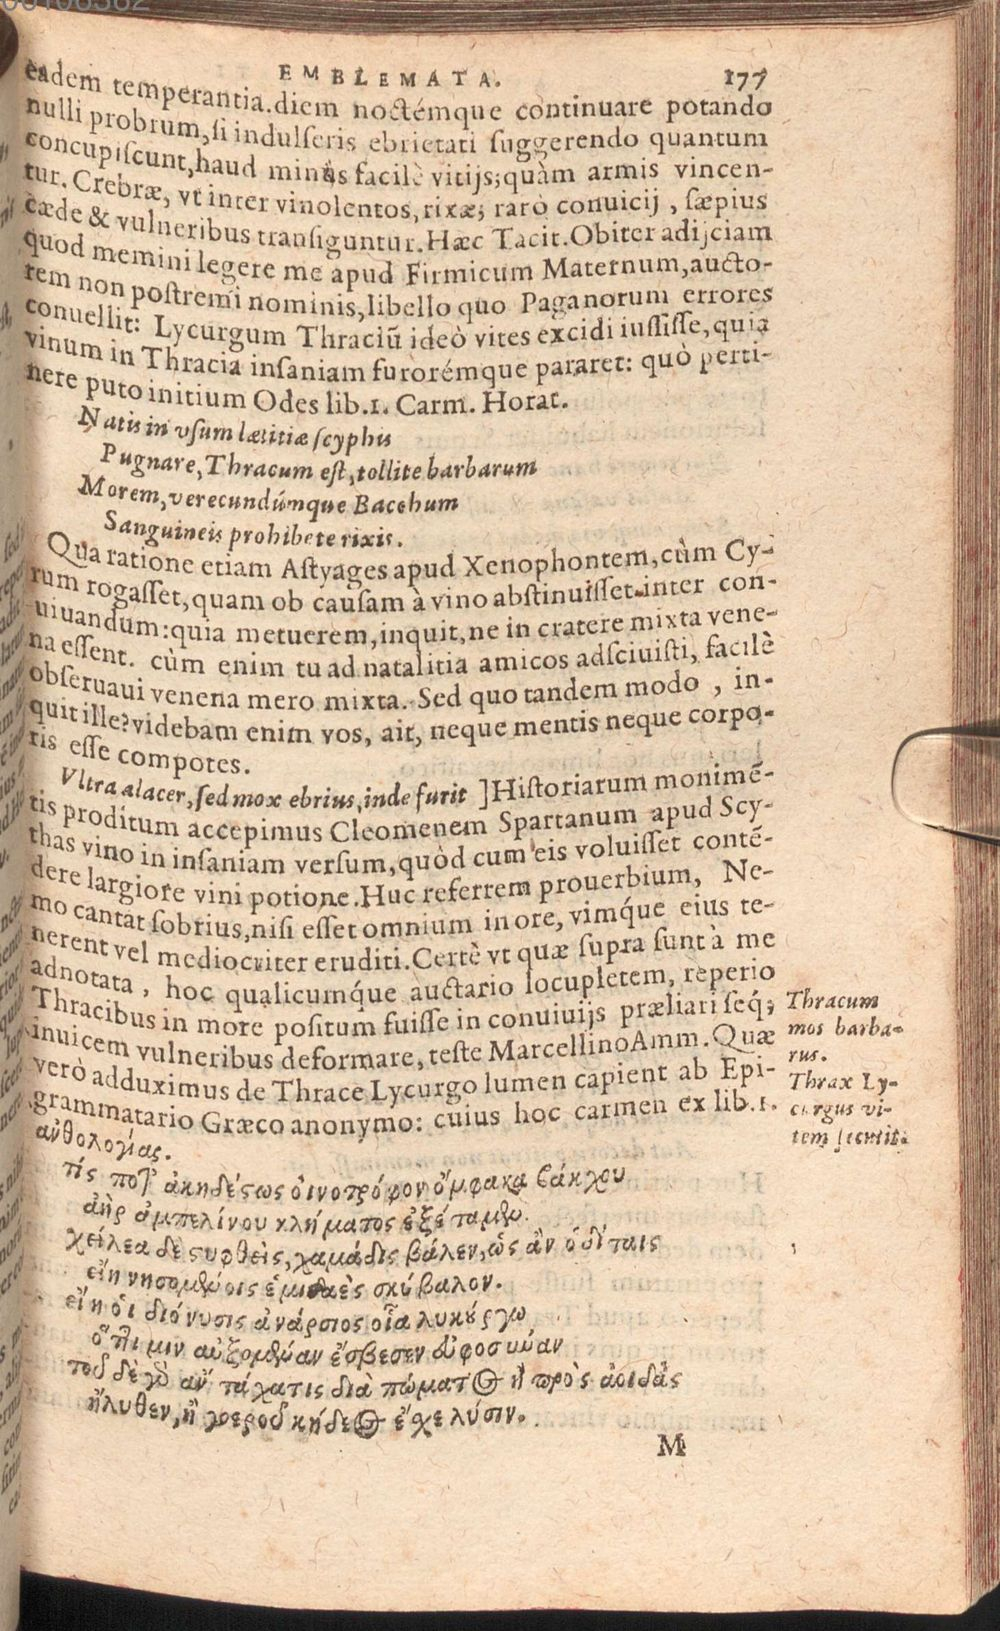 EMBLEMATA. 177
eadem temperantia. diem noctémque continuare potando
nulli probrum, si indulseris ebrietati suggerendo quantum
concupiscunt, haud minùs facilè vitijs; quàm armis vincen-
tur. Crebræ, vt inter vinolentos, rixæ; rarò conuicij, sæpius
cæde & vulneribus transiguntur. Hæc Tacit. Obiter adijciam
quod memini legere me apud Firmicum Maternum, aucto-
rem non postremi nominis, libello quo Paganorum errores
conuellit: Lycurgum Thraciũ ideò vites excidi iussisse, quia
vinum in Thracia insaniam furorémque pararet: quò perti-
nere puto initium Odes lib. 1. Carm. Horat.
Natis in vsum lætitiæ scyphis
Pugnare, Thracum est, tollite barbarum
Morem, verecundúmque Bacchum
Sanguineis prohibete rixis.
Qua ratione etiam Astyages apud Xenophontem, cùm Cy-
rum rogasset, quam ob causam à vino abstinuisset inter con-
uiuandum: quia metuerem, inquit, ne in cratere mixta vene-
na essent. cùm enim tu ad natalitia amicos adsciuisti, facilè
obseruaui venena mero mixta. Sed quo tandem modo, in-
quit ille? videbam enim vos, ait, neque mentis neque corpo-
ris esse compotes.
Vltra alacer, sed mox ebrius, inde furit ] Historiarum monimẽ-
tis proditum accepimus Cleomenem Spartanum apud Scy-
thas vino in insaniam versum, quòd cum eis voluisset contẽ-
dere largiore vini potione. Huc referrem prouerbium, Ne-
mo cantat sobrius, nisi esset omnium in ore, vimq́ue eius te-
nerent vel mediocriter eruditi. Certè vt quæ supra sunt à me
adnotata, hoc qualicumq́ue auctario locupletem, reperio
Thracibus in more positum fuisse in conuiuijs præliari seq́;
inuicem vulneribus deformare, teste Marcellino Amm. Quæ
verò adduximus de Thrace Lycurgo lumen capient ab Epi-
grammatario Græco anonymo: cuius hoc carmen ex lib. 1.
ἀνθολογίας.
τίς ποτ᾽ ἀκηδέστως οἰνοτρόφον ὄμφακα βάκχου
ἀνὴρ ἀμπελίνου κλήματος ἐξέταμεν.
χείλεα δὲ στυφθεὶς, χαμάδις βάλεν, ὡς ἂν ὁδίταις
εἴη νησομένοις ἡμιδαὲς σκύβαλον.
εἴη οἱ διόνυσις ἀνάρσιος οἷα λυκούργῳ
ὅττι μιν αὐξομένην ἔσβεσεν εὐφοσύναν
τοῦ δὲ γὰρ ἂν τάχα τις διὰ πώματος ἢ πρὸς ἀοιδὰς
ἤλυθεν, ἢ γοεροῦ κήδεος ἔχε λύσιν.
M
Thracum
mos barba-
rus.
Thrax Ly-
curgus vi-
tem secuit.